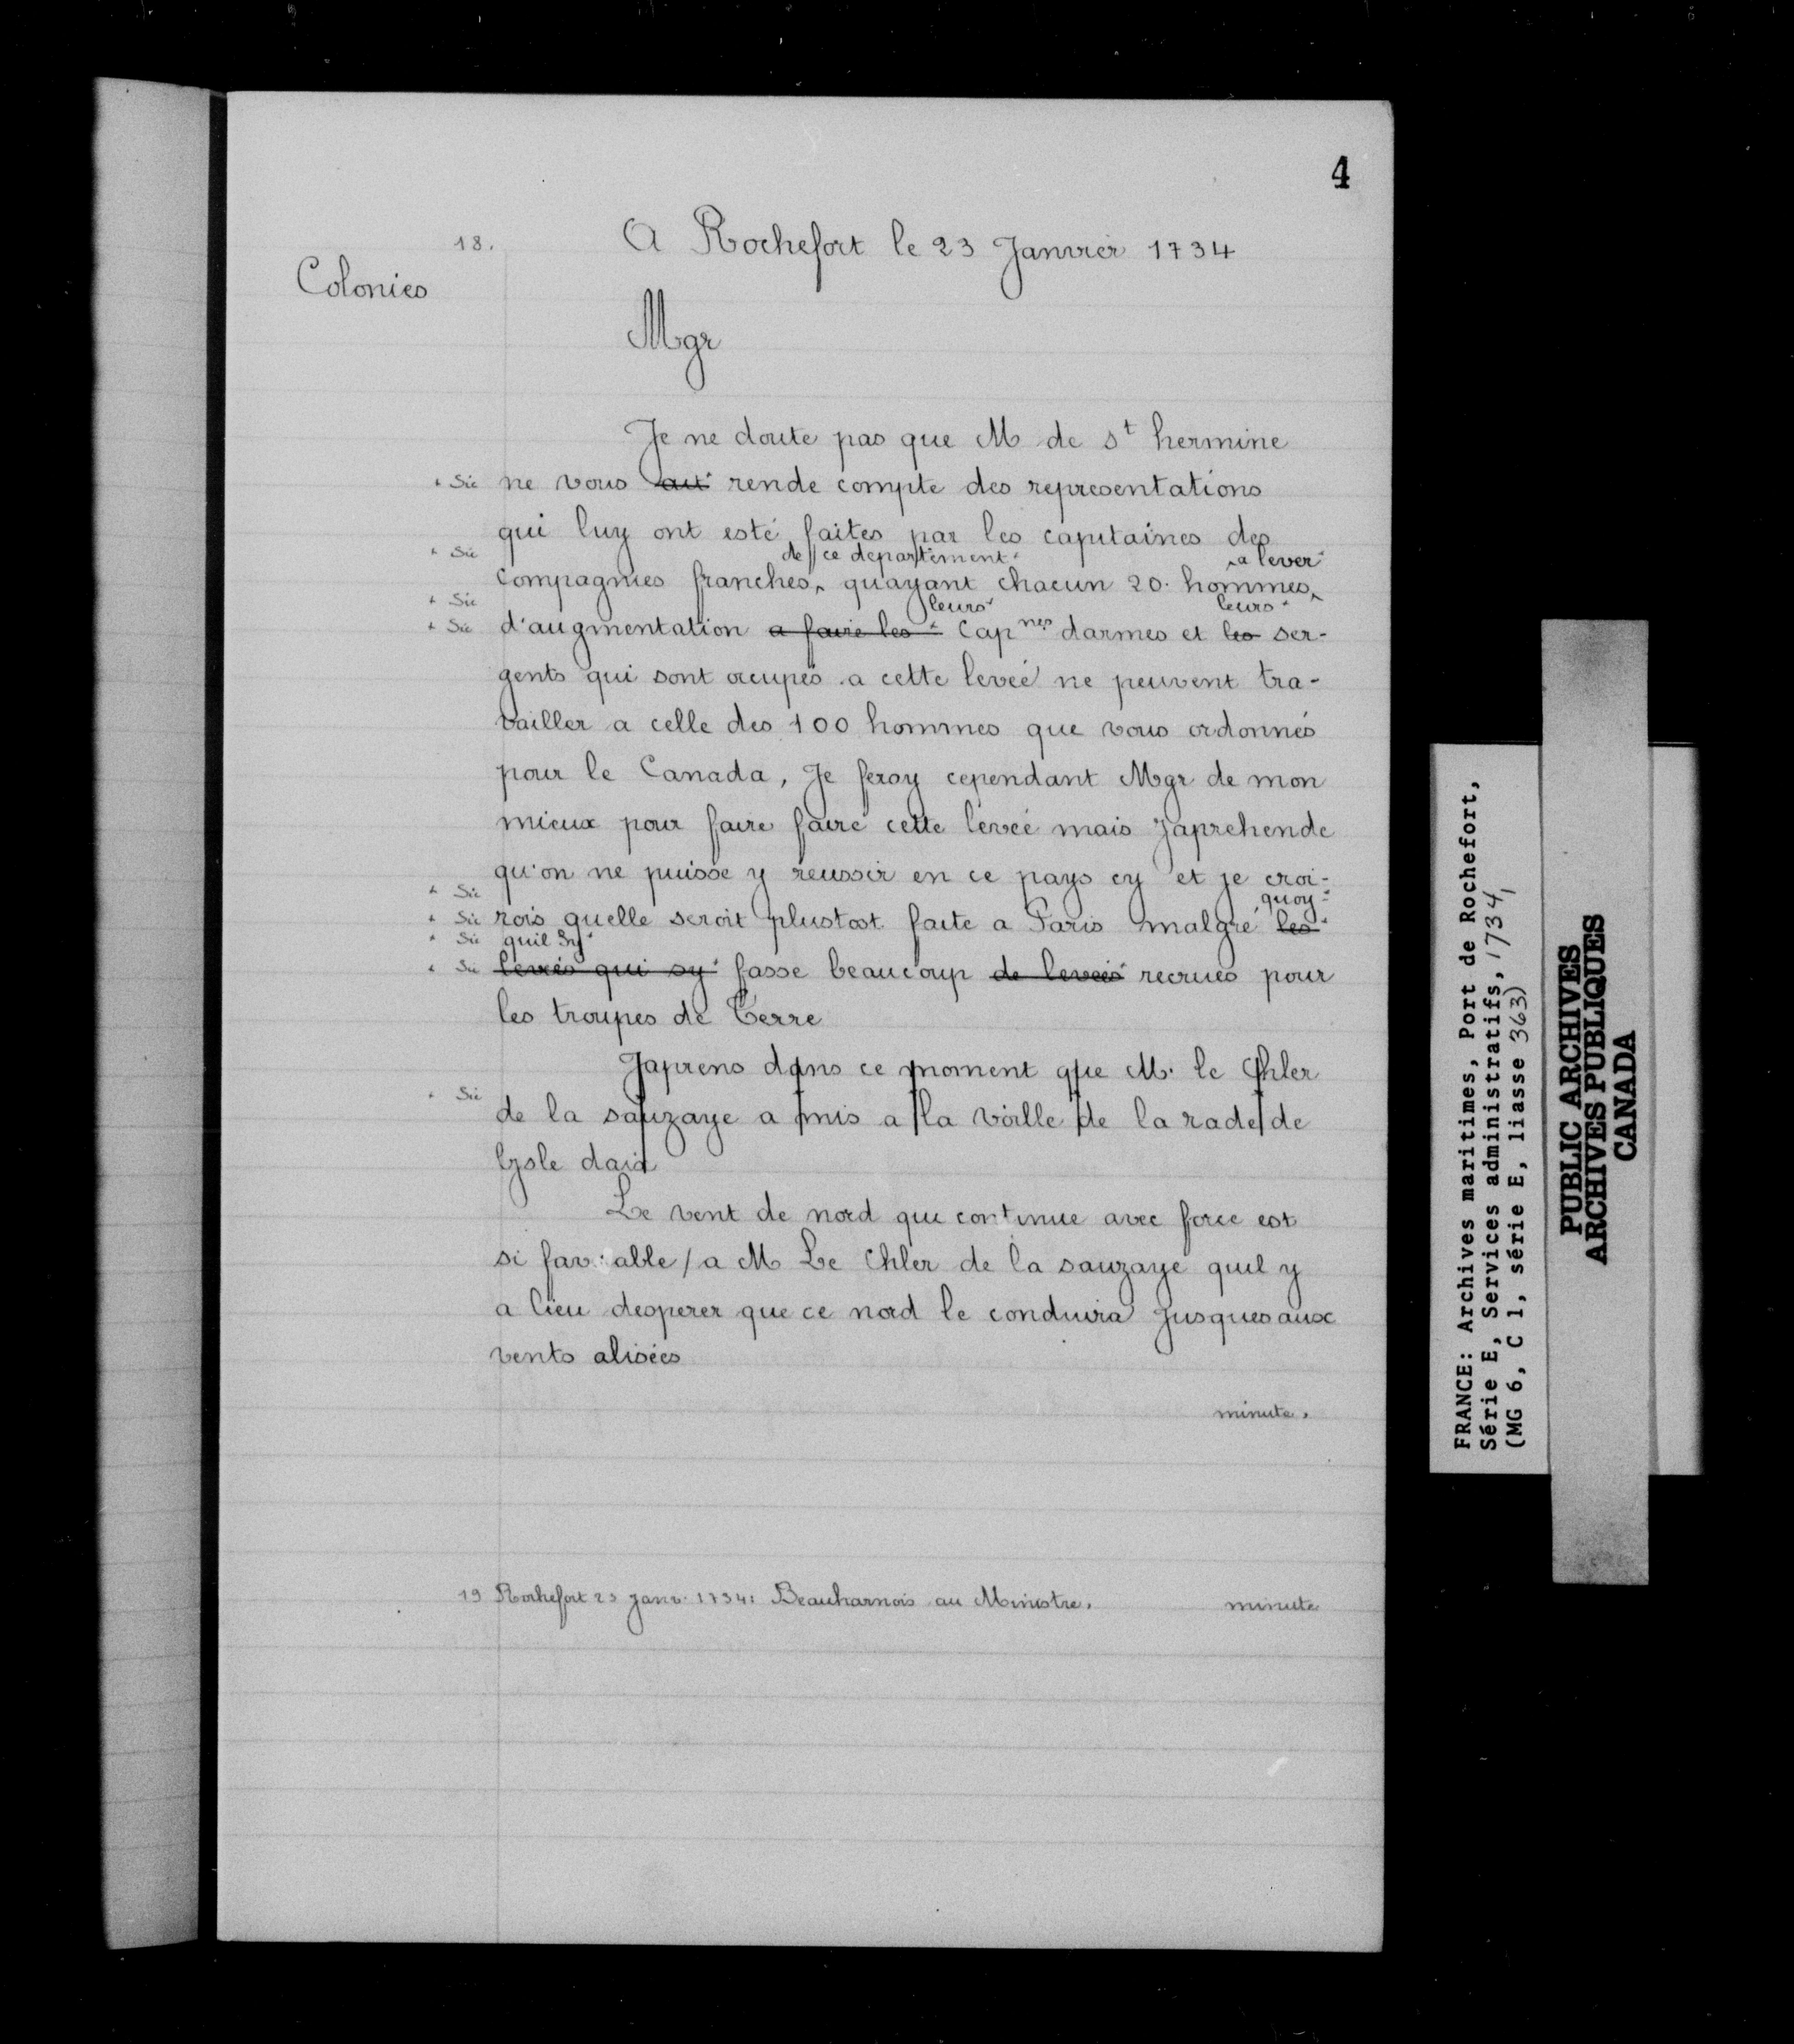 4
18.
A Rochefort le 23 Janvier 1734
Colonies
Mgr
Je ne doute pas que M de st hermine
+ Sic ne vous ait rende compte des representations
qui luy ont esté faites par les capitaines des
+ Sic de ce departement a lever
compagnies franches, quayant chacun 20. hommes
+ Sic leurs leurs
+ Sic d'augmentation a faire les Capnes darmes et les ser-
gents qui sont ocupés a cette leveé ne peuvent tra-
vailler a celle des 100 hommes que vous ordonnés
pour le Canada, Je feray cependant Mgr de mon
mieux pour faire faire cette leveé mais Japrehende
qu'on ne puisse y reussir en ce pays cy et je croi-
+ Sic quoy
+ Sic rois quelle seroit plustost faite a Paris malgré les
+ Sic quil sy
+ Sic levées qui sy fasse beaucoup de levées recrues pour
les troupes de Terre
Japrens dans ce moment que M. le Chler
+ Sic
de la sauzaye a mis a la voille de la rade de
lysle daix
Le vent de nord qui continue avec force est
si favorable / a M Le Chler de la sauzaye quil y
a lieu desperer que ce nord le conduira Jusques aux
vents alisées
minute.
19 Rochefort 23 Janv. 1734: Beauharnois au Ministre. minute
FRANCE: Archives maritimes, Port de Rochefort,
Série E, Services administratifs, 1734,
(MG 6, C 1, série E, liasse 363)
PUBLIC ARCHIVES
ARCHIVES PUBLIQUES
CANADA